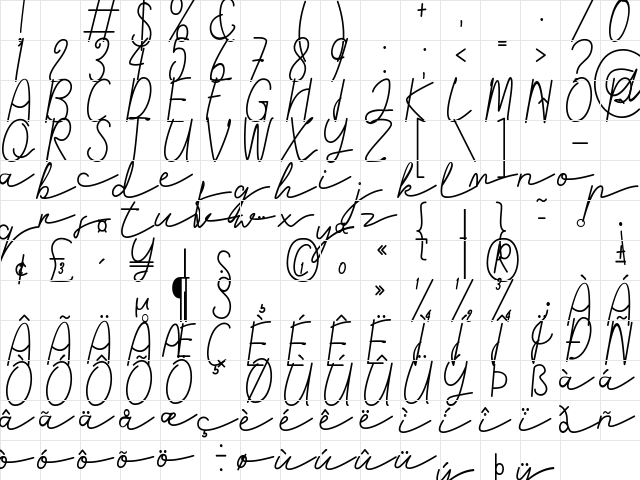 ! # $ % & ( ) + , . / 0
1 2 3 4 5 6 7 8 9 : ; < = > ? @
A B C D E F G H I J K L M N O P
Q R S T U V W X Y Z [ \ ] -
a b c d e f g h i j k l m n o p
q r s t u v w x y z { | } ~
¢ £ ´ ¥ ¶ § © « ® ±
µ » ¼ ½ ¾ ¿ À Á
Â Ã Ä Å Æ Ç È É Ê Ë Ì Í Î Ï Ð Ñ
Ò Ó Ô Õ Ö × Ø Ù Ú Û Ü Ý Þ ß à á
â ã ä å æ ç è é ê ë ì í î ï ð ñ
ò ó ô õ ö ÷ ø ù ú û ü ý þ ÿ